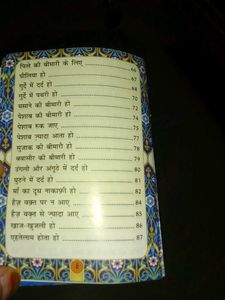 पित्ते की बीमारी के लिए 66
पीलिया हो 67
गुर्दे में दर्द हो 68
गुर्दे में पथरी हो 70
मसाने की बीमारी हो 72
पेशाब की बीमारी हो 74
पेशाब रूक जाए 75
पेशाब ज़्यादा आता हो 77
सुज़ाक की बीमारी हो 78
बवासीर की बीमारी हो 79
उंगली और अंगूठे में दर्द हो 80
घुटने में दर्द हो 81
माँ का दूध नाकाफ़ी हो 82
हैज़ वक़्त पर न आए 84
हैज़ वक़्त से ज़्यादा आए 85
खाज-खुजली हो 86
एहतेलाम होता हो 87